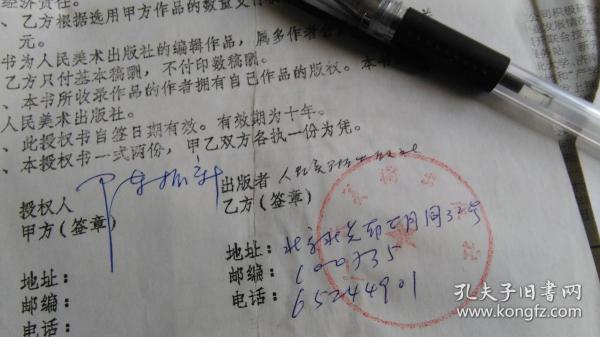 经济责任。
、乙方根据选用甲方作品的数量支付
元。
书为人民美术出版社的编辑作品，属多作者
乙方只付基本稿酬，不付印数稿酬。
、本书所收录作品的作者拥有自己作品的版权。本书
人民美术出版社。
、此授权书自签日期有效。有效期为十年。
、本授权书一式两份，甲乙双方各执一份为凭。
授权人
甲方(签章)
地址：
邮编：
电话：
出版者 人民美术出版社
乙方(签章)
地址：北京北总布胡同32号
邮编：100735
电话：65244901
孔夫子旧书网
www.kongfz.com